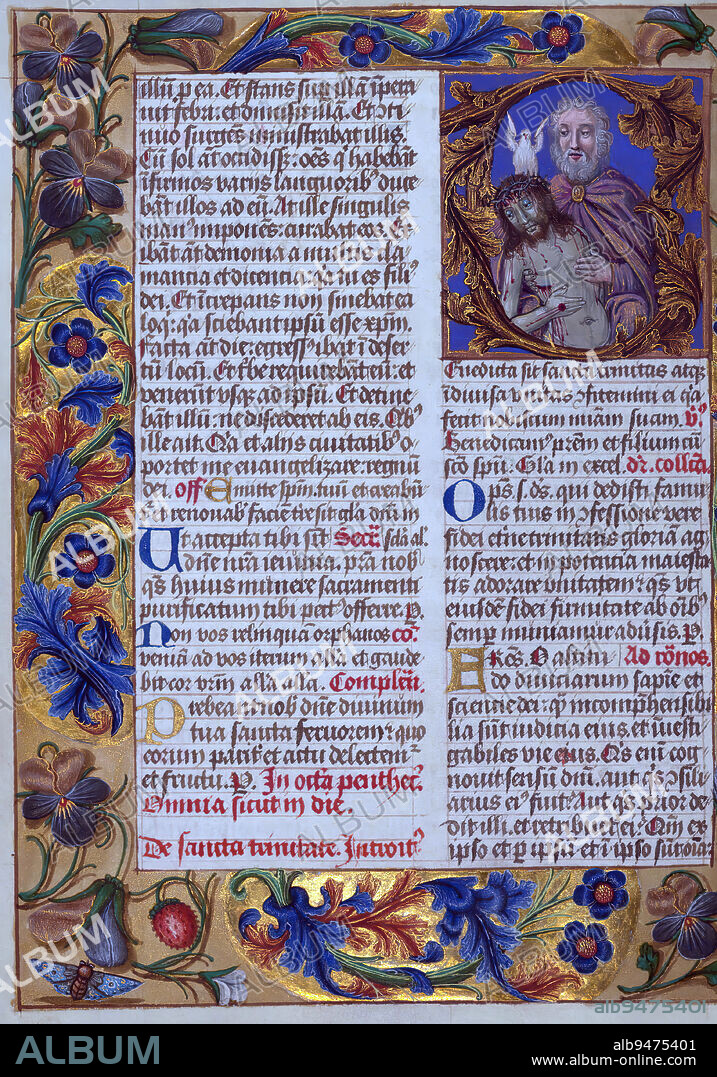 illū p ea. Et stans sup illā īpera
uit febri. et dimisit illā. Et ꝯti
nuo surgēs ministrabat illis.
Cū sol aūt occidissꝫ: oēs qͥ habebāt
īfirmos varijs languoribꝰ duce
bāt illos ad eū. At ille singulis
manꝰ imponēs: curabat eos. Ex
ibāt aūt demonia a multis cla
mancia et dicencia: qꝛ tu es filiꝰ
dei. Et īcrepans non sinebat ea
loqͥ: qꝛ sciebant ipsū esse xpm̄.
Facta aūt die: egressꝰ ibat ī deser
tū locū. Et tbe requirebāt eū: et
venerūt usqꝫ ad ipsū. Et detine
bāt illū: ne discederet ab eis. Qibꝰ
ille ait. Qꝛ et alijs ciuitatibꝰ o
portet me euangelizare regnū
dei. off Emitte spm̄ tuū et creabūt
et renouab faciem tre sit gla dm̄ in
Ut accepta tibi sit Secr̄. scla al.
dn̄e nrā ieiunia. prā nob
qs̄ huius munere sacramenti
purificatum tibi pect offerre. P.
Non vos relinquā orphanos cō.
veniā ad vos iterum alla et gaude
bit cor vrm̄ alla alla. Complen̄.
Prebeat nob dn̄e diuinum
tua sancta feruorem: quo
eorum parit et actu delectemꝰ
et fructu. P. In octa penthec.
Omnia sicut in die.
De sancta trinitate. Introitꝰ
Benedicta sit sancta trinitas atqꝫ
īdiuisa vnitas ꝯfitemini ei qꝛ
fecit nobiscum miām suam. v̄
Benedicamꝰ prem et filium cū
scō spū. Gla in excel. dr̄. collcā.
Ops̄. s. ds. qui dedisti famu
lis tuis in ꝯfessione vere
fidei etne trinitatis gloriā ag
noscere: et in potencia maiesta
tis adorare vnitatem: qs̄ vt
eiusdē fidei firmitate ab oībꝰ
semp muniamur aduīsis. P.
Ad rōnos.
O altitudo diuiciarum sapie et
sciencie dei: qͣ incomphensibi
lia sūt iudicia eius. et īuesti
gabiles vie eius. Qs eni cog
nouit sensū dni. aut qs ꝯsili
arius eiꝰ fuit: Aut qs prior de
dit illi. et retribuet ei: Qm̄ ex
ipso et p ipm̄ et ī ipso sūt oīa:
ALBUM
alb9475401
ALBUM
alb9475401
www.album-online.com